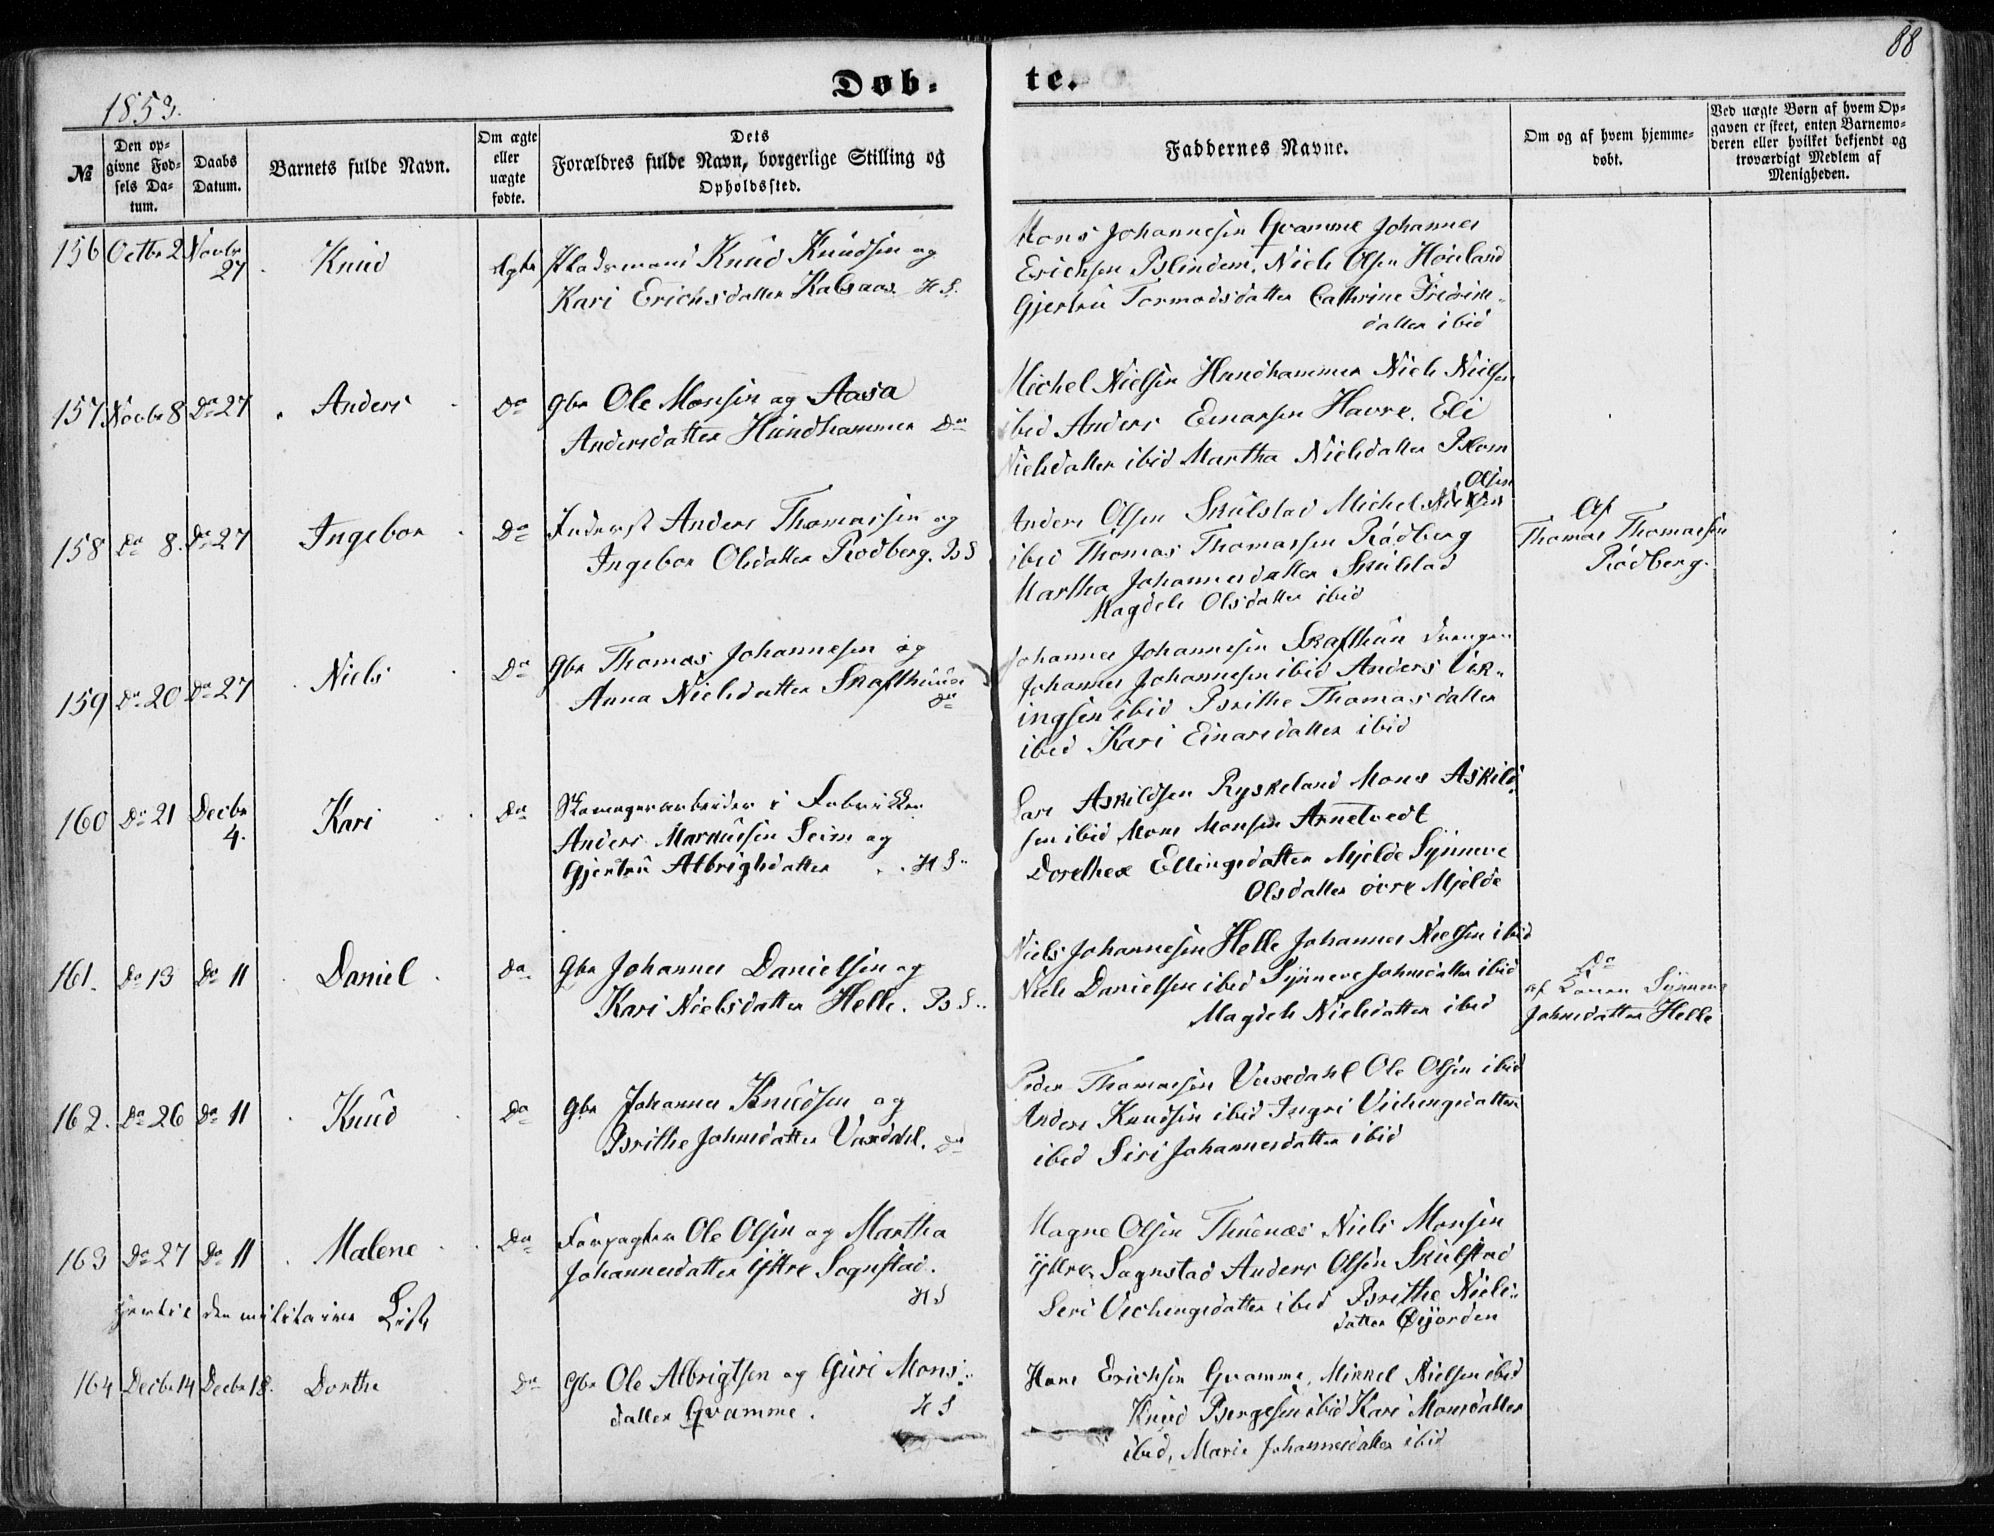 88
Døb-
te.
1853.
№
Den op-
givne Fød-
sels Da-
tum.
Daabs
Datum.
Barnets fulde Navn.
Om ægte
eller
uægte
fødte.
Dets
Forældres fulde Navn, borgerlige Stilling og
Opholdssted.
Faddernes Navne.
Om og af hvem hjemme-
døbt.
Ved uægte Børn af hvem Op-
gaven er skeet, enten Barnemo-
deren eller hvilket bekjendt og
troværdigt Medlem af
Menigheden.
156 Octbr 2 Novbr
27
Knud
Ægte
Pladsmand Knud Knudsen og
Kari Erichsdatter Kalsaas HS.
Mons Johannesen Qvamme Johannes
Erichsen Blindem, Niels Olsen Høuland
Gjertru Tormodsdatter Cathrine Fridrik-
datter ibid
157 Novbr 8 Do 27
Anders
Do
Gbr Ole Monsen og Aasa
Andersdatter Hundhammer Do
Michel Nielsen Hundhammer Niels Nielsen
ibid Anders Einarsen Havre. Eli
Nielsdatter ibid Martha Nielsdatter Blom
158 Do 8. Do 27
Ingebor
Do
Inderst Anders Thomassen og
Ingebor Olsdatter Rødberg. BS
Olsen
Anders Olsen Skulstad Michel
ibid Thomas Thomassen Rødberg
Martha Johannesdatter Skulstad
Magdeli Olsdatter ibid
Af
Thomas Thomassen
Rødberg.
159 Do 20 Do 27
Niels
Do
Gbr Thomas Johannesen og
Anna Nielsdatter Skafthuun
Do
Johannes Johannesen Skafthun drengen
Johannes Johannesen ibid Anders Vik-
ingsen ibid Brithe Thomasdatter
ibid Kari Einarsdatter ibid
160 Do 21 Decbr
4.
Kari
Do
Skomagerarbeider i Fabrikken
Anders Markussen Seim og
Gjertru Albrigtsdatter HS
Lars Askildsen Ryskeland Mons Askild-
sen ibid Mons Monsen Arnetvedt
Dorethea Ellingsdatter Mjelde Synneve
Olsdatter øvre Mjelde
161. Do 13 Do 11
Daniel
Do
Gbr Johannes Danielsen og
Kari Nielsdatter Helle. BS
Niels Johannesen Helle Johannes Nielsen ibid
Niels Danielsen ibid Synneve Johnsdatter ibid
Magdeli Nielsdatter ibid
Do
af Konen Synneve
Johnsdatter Helle
162. Do 26 Do 11
Knud
Do
Gbr Johannes Knudsen og
Brithe Johnsdatter Vaxdahl. Do
Peder Thomassen Vaxedahl Ole Olsen ibid
Anders Knudsen ibid Ingri Vichengsdatter
ibid Siri Johannesdatter ibid
163 Do 27 Do 11
Malene
Do
Forpagter Ole Olsen og Martha
Johannesdatter Yttre Sognstad.
HS
Magne Olsen Thuenæs Niels Monsen
Yttre Sagnstad Anders Olsen Skulstad
Seri Vichengsdatter ibid Brithe Niels-
datter Øyjorden
hertil den militaire Liste
164 Decbr 14 Decbr 18.
Dorthe
Do
Gbr Ole Albrigtsen og Guri Mons-
datter Qvamme. HS
Hans Erichsen Qvamme, Mikkel Nielsen ibid
Knud Børgesen ibid Kari Monsdatter
ibid, Mari Johannesdatter ibid